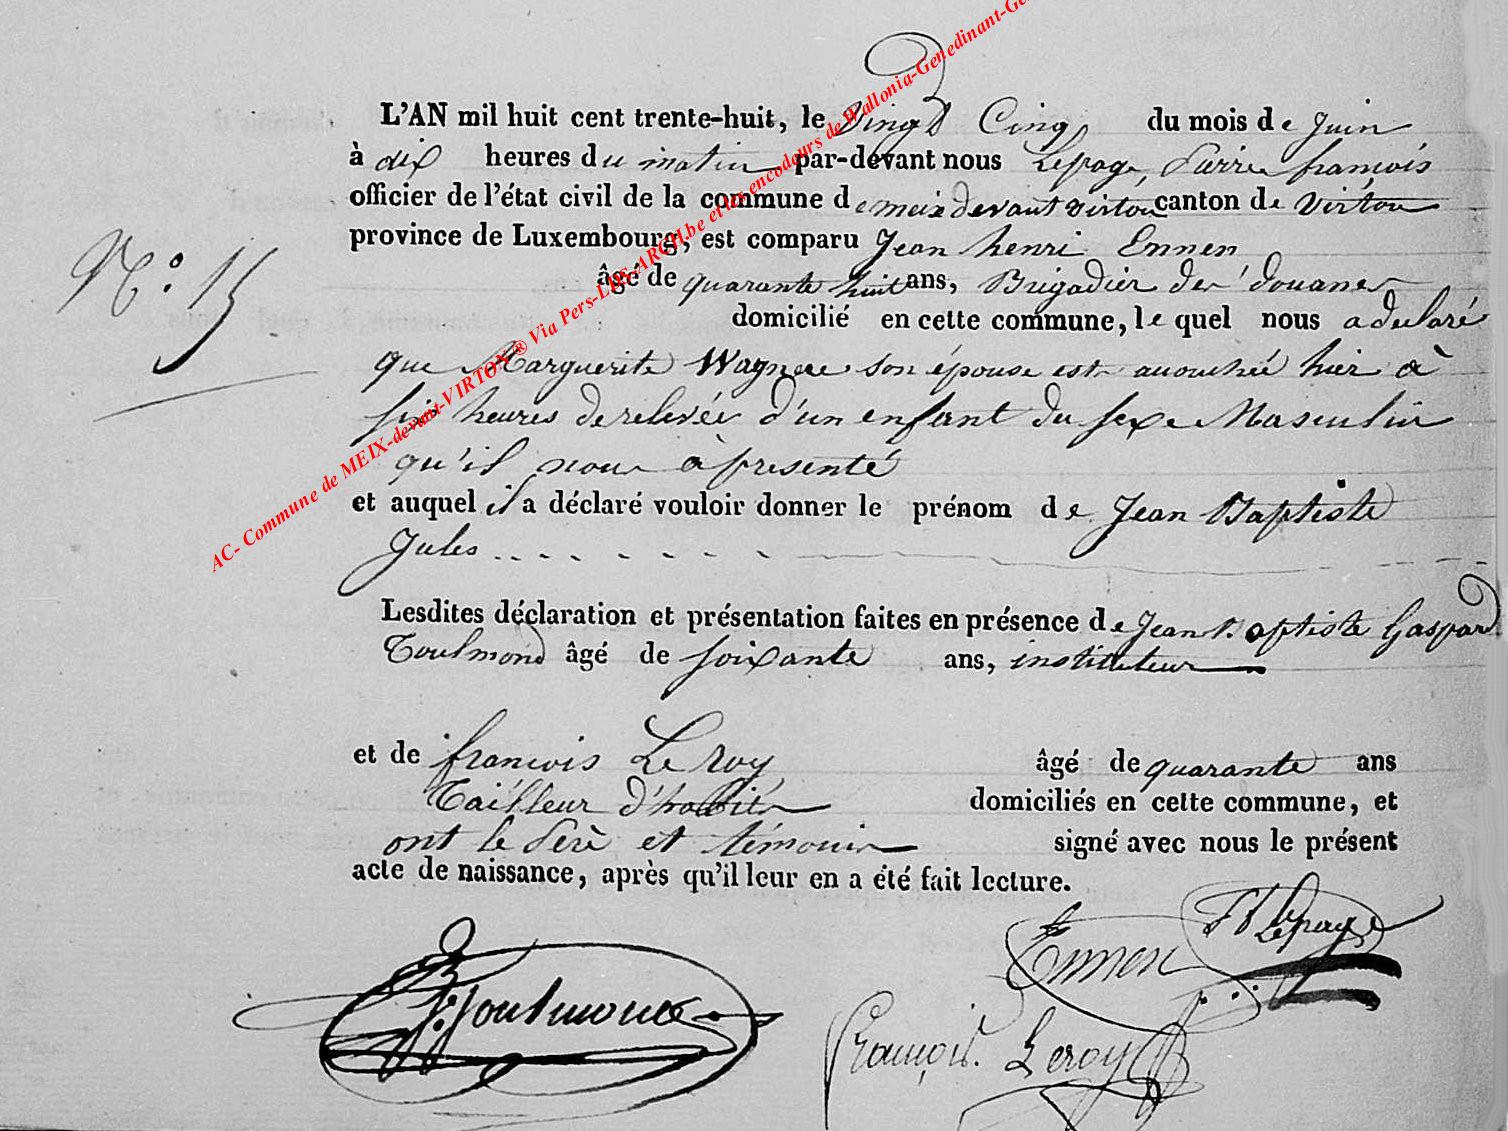 L'AN mil huit cent trente-huit, le Vingt Cinq du mois de Juin
à dix heures du matin par-devant nous Lepage, Pierre françois
officier de l'état civil de la commune de meix devant virton canton de Virton
province de Luxembourg, est comparu Jean henri Ennen
âgé de quarante huit ans, Brigadier des douanes
domicilié en cette commune, le quel nous a declaré
N.º 15
que Marguerite Wagner son épouse est accouchée hier à
six heures de relevée d'un enfant du sexe Masculin
qu'il nous à presenté
et auquel il a déclaré vouloir donner le prénom de Jean Baptiste
Jules
Lesdites déclaration et présentation faites en présence de Jean Baptiste Gaspard
Toulmond âgé de soixante ans, instituteur
et de françois Le Roy âgé de quarante ans
Tailleur d'habits domiciliés en cette commune, et
ont le Père et témoins signé avec nous le présent
acte de naissance, après qu'il leur en a été fait lecture.
Lepage
Ennen
Toulmond
François Leroy
AC- Commune de MEIX-devant-VIRTON ® Via Pers-LDS-ARCH.be et les encodeurs de Wallonia-Genedinant-Ge